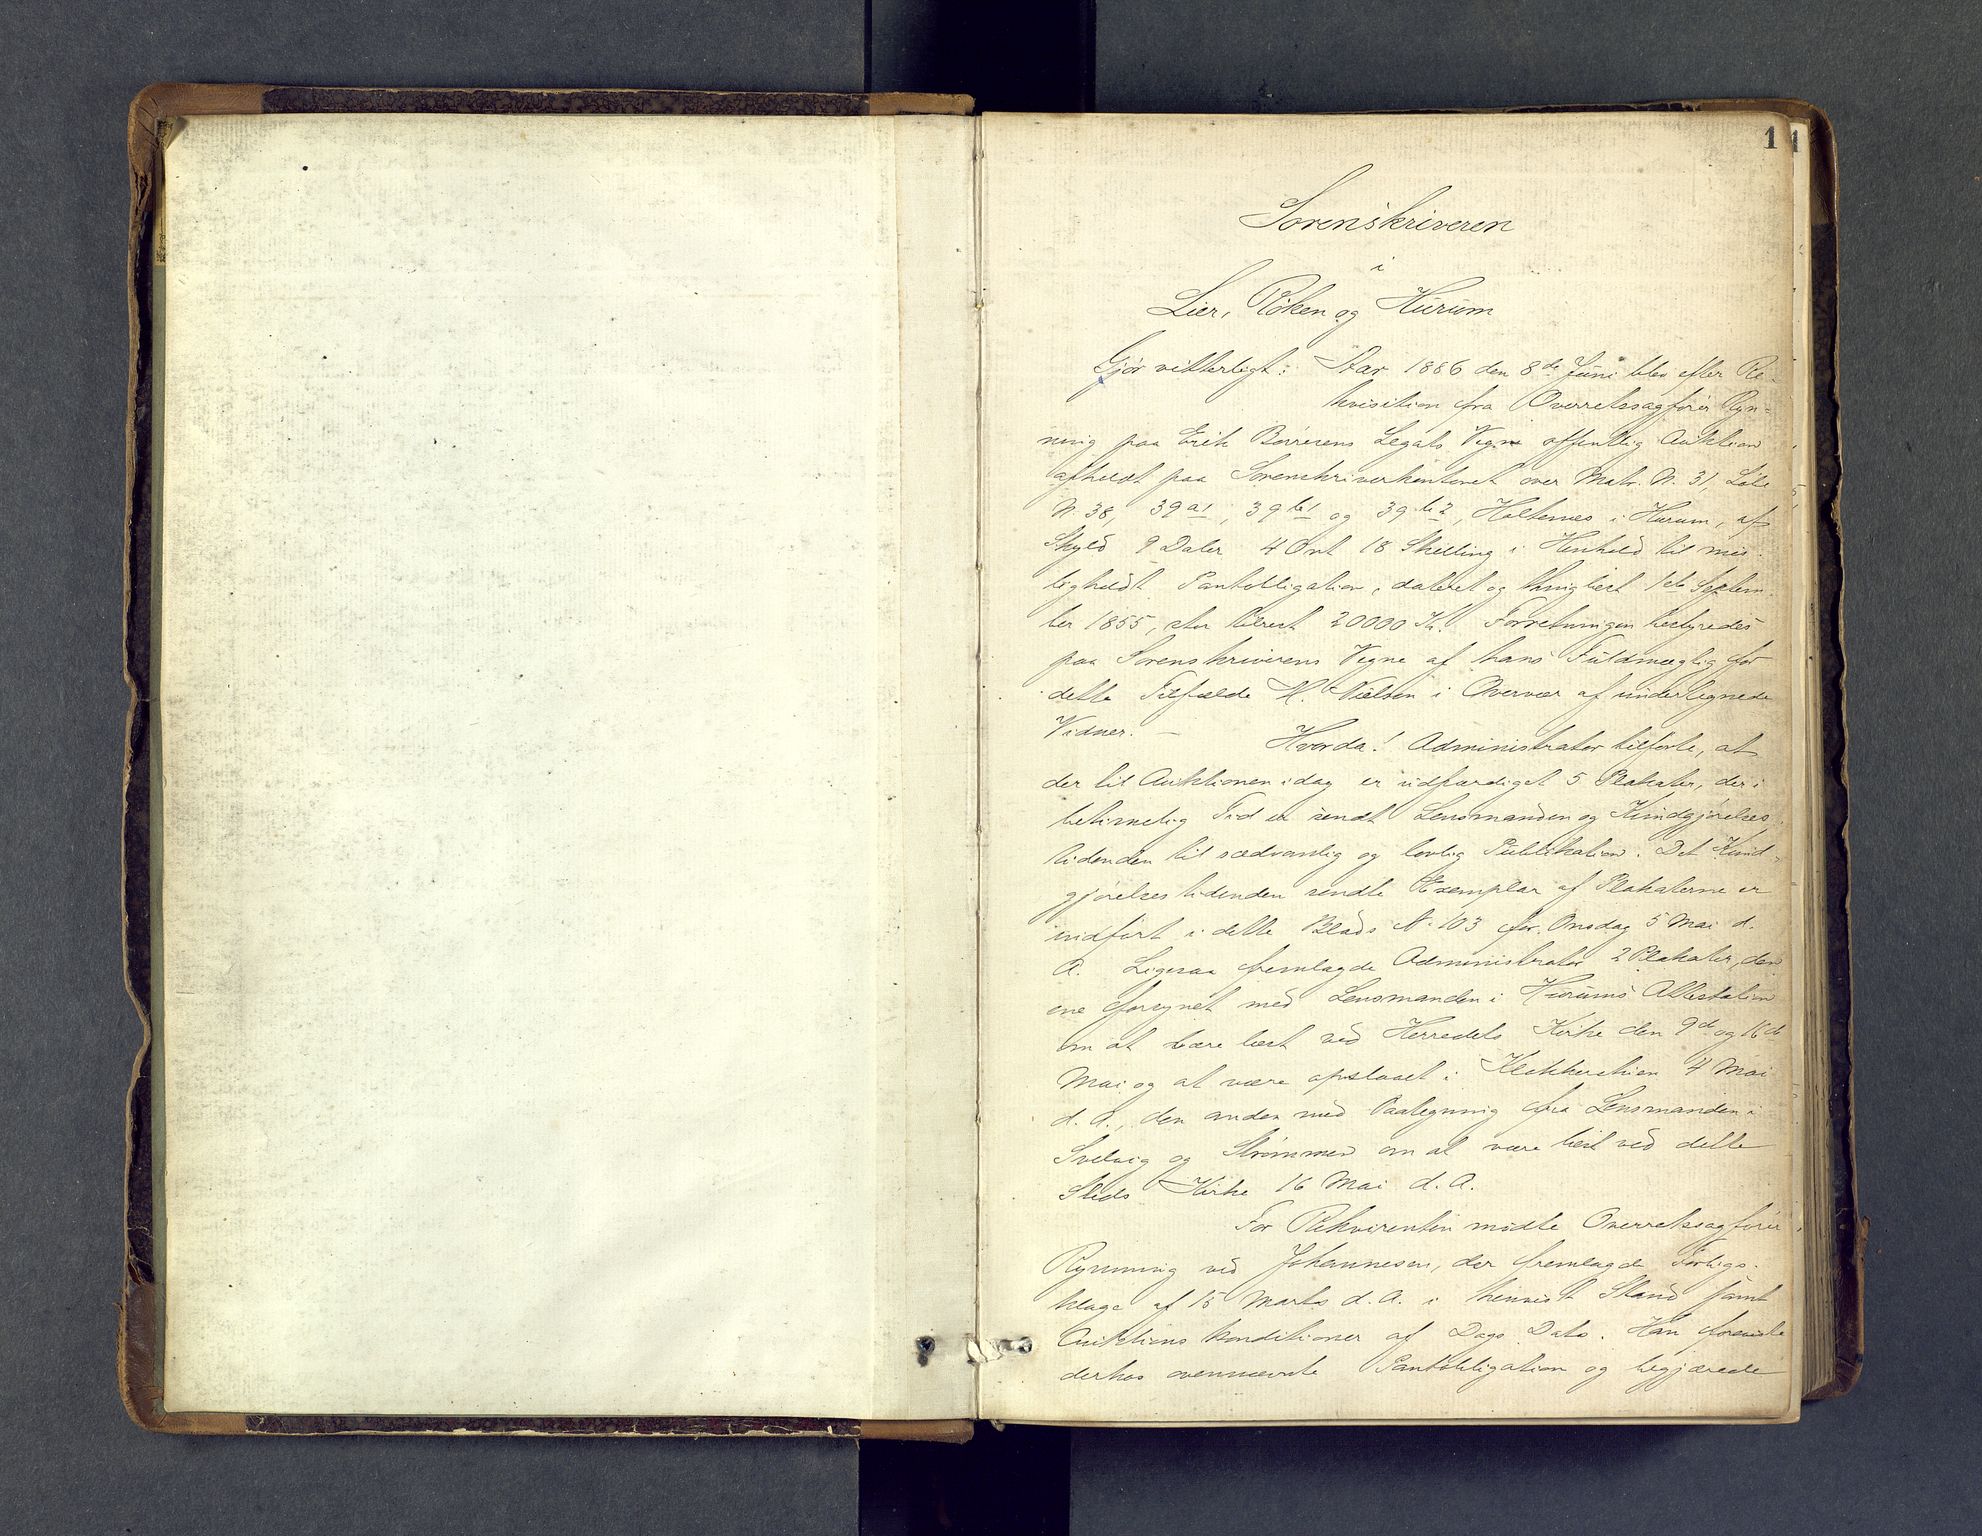 1
Sorenskriveren
i
Lier, Röken og Hurum
Gjör vitterligt: Aar 1886 den 8de Juni blev efter Re-
kvisition fra Overretssagförer Ryn-
ning paa Erik Börresens Legats Vegne offentlig Auktion
afholdt paa Sorenskriverkontoret over Matr. N. 31, Löbe
N. 38, 39 a1, 39 b1 og 39 b2, Holtenes i Hurum, af
Skyld 9 Daler 4 Ort 18 Skilling i Henhold til mis-
ligholdt Pantobligation, dateret og thinglæst 1ste Septem-
ber 1855, stor tilrest 20000 Kr. Forretningen bestyredes
paa Sorenskriverens Vegne af hans Fuldmægtig for
dette Tilfælde H. Nielsen i Overvær af underlegnede
Vidner. —
Hvorda! Administrator tilförte, at
der til Auktionen idag er udfærdiget 5 Plakater, der i
betimelig Tid er sendt Lensmanden og Kundgjörelses-
tidenden til sædvanlig og lovlig Publikation. Det Kund-
gjörelsestidenden sendte Exemplar af Plakaterne er
indfört i dette Blads N. 103 for Onsdag 5 Mai d.
A. Ligesaa fremlagde Administrator 2 Plakater, den
ene forsynet med Lensmanden i Hurums Attestation
om at være læst ved Herredets Kirke den 9de og 16de
Mai og at være opslaaet i Klokkerstuen 4 Mai
d. A., den anden med Paategning fra Lensmanden i
Svelvig og Strömmen om at være læst ved dette
Steds Kirke 16 Mai d. A.
For Rekvirenten mödte Overretssagförer
Rynning ved Johannesen, der fremlagde Forligs-
klage af 15 Marts d. A. i henvist Stand samt
Auktionskonditioner af Dags Dato. Han foreviste
derhos ovennævnte Pantobligation og begjærede